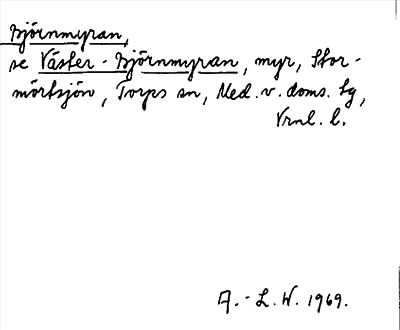 Björnmyran,
se Väster-Björnmyran, myr, Stor-
mörtsjön, Torps sn, Med. v. doms. tg,
Vrnl. l.
A.-L. W. 1969.